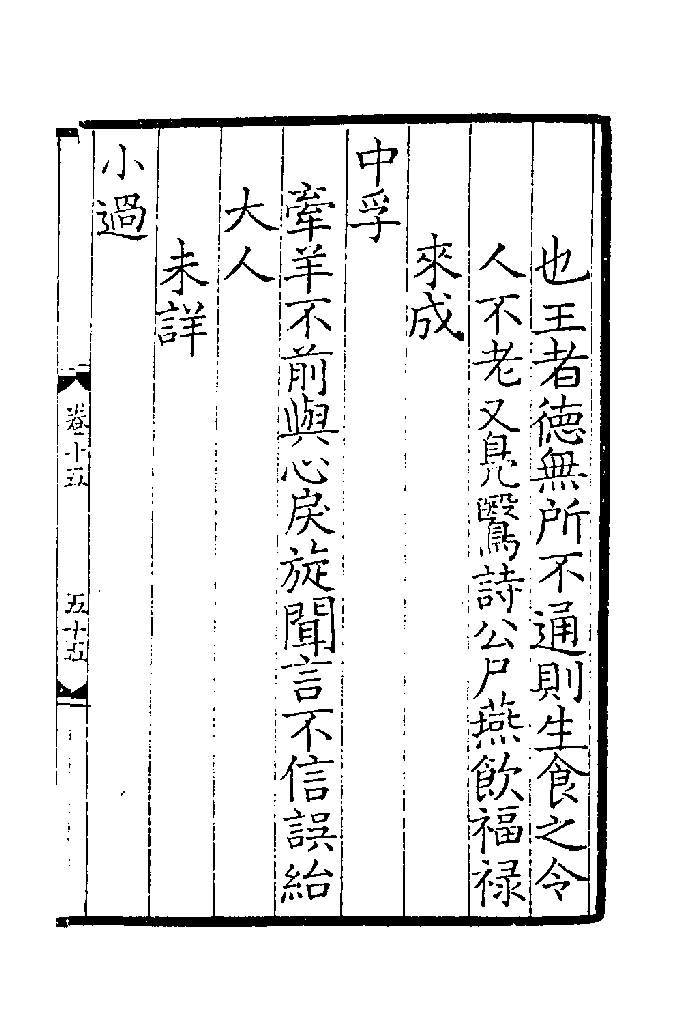 也王者德無所不通則生食之令
人不老又鳧鷖詩公尸燕飲福禄
來成
中孚
牽羊不前與心戾旋聞言不信誤紿
大人
未詳
小過
卷十五
五十五